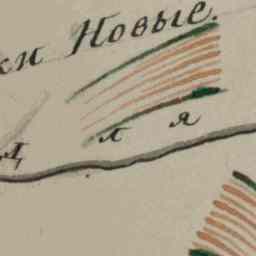 ки Новые.
л я